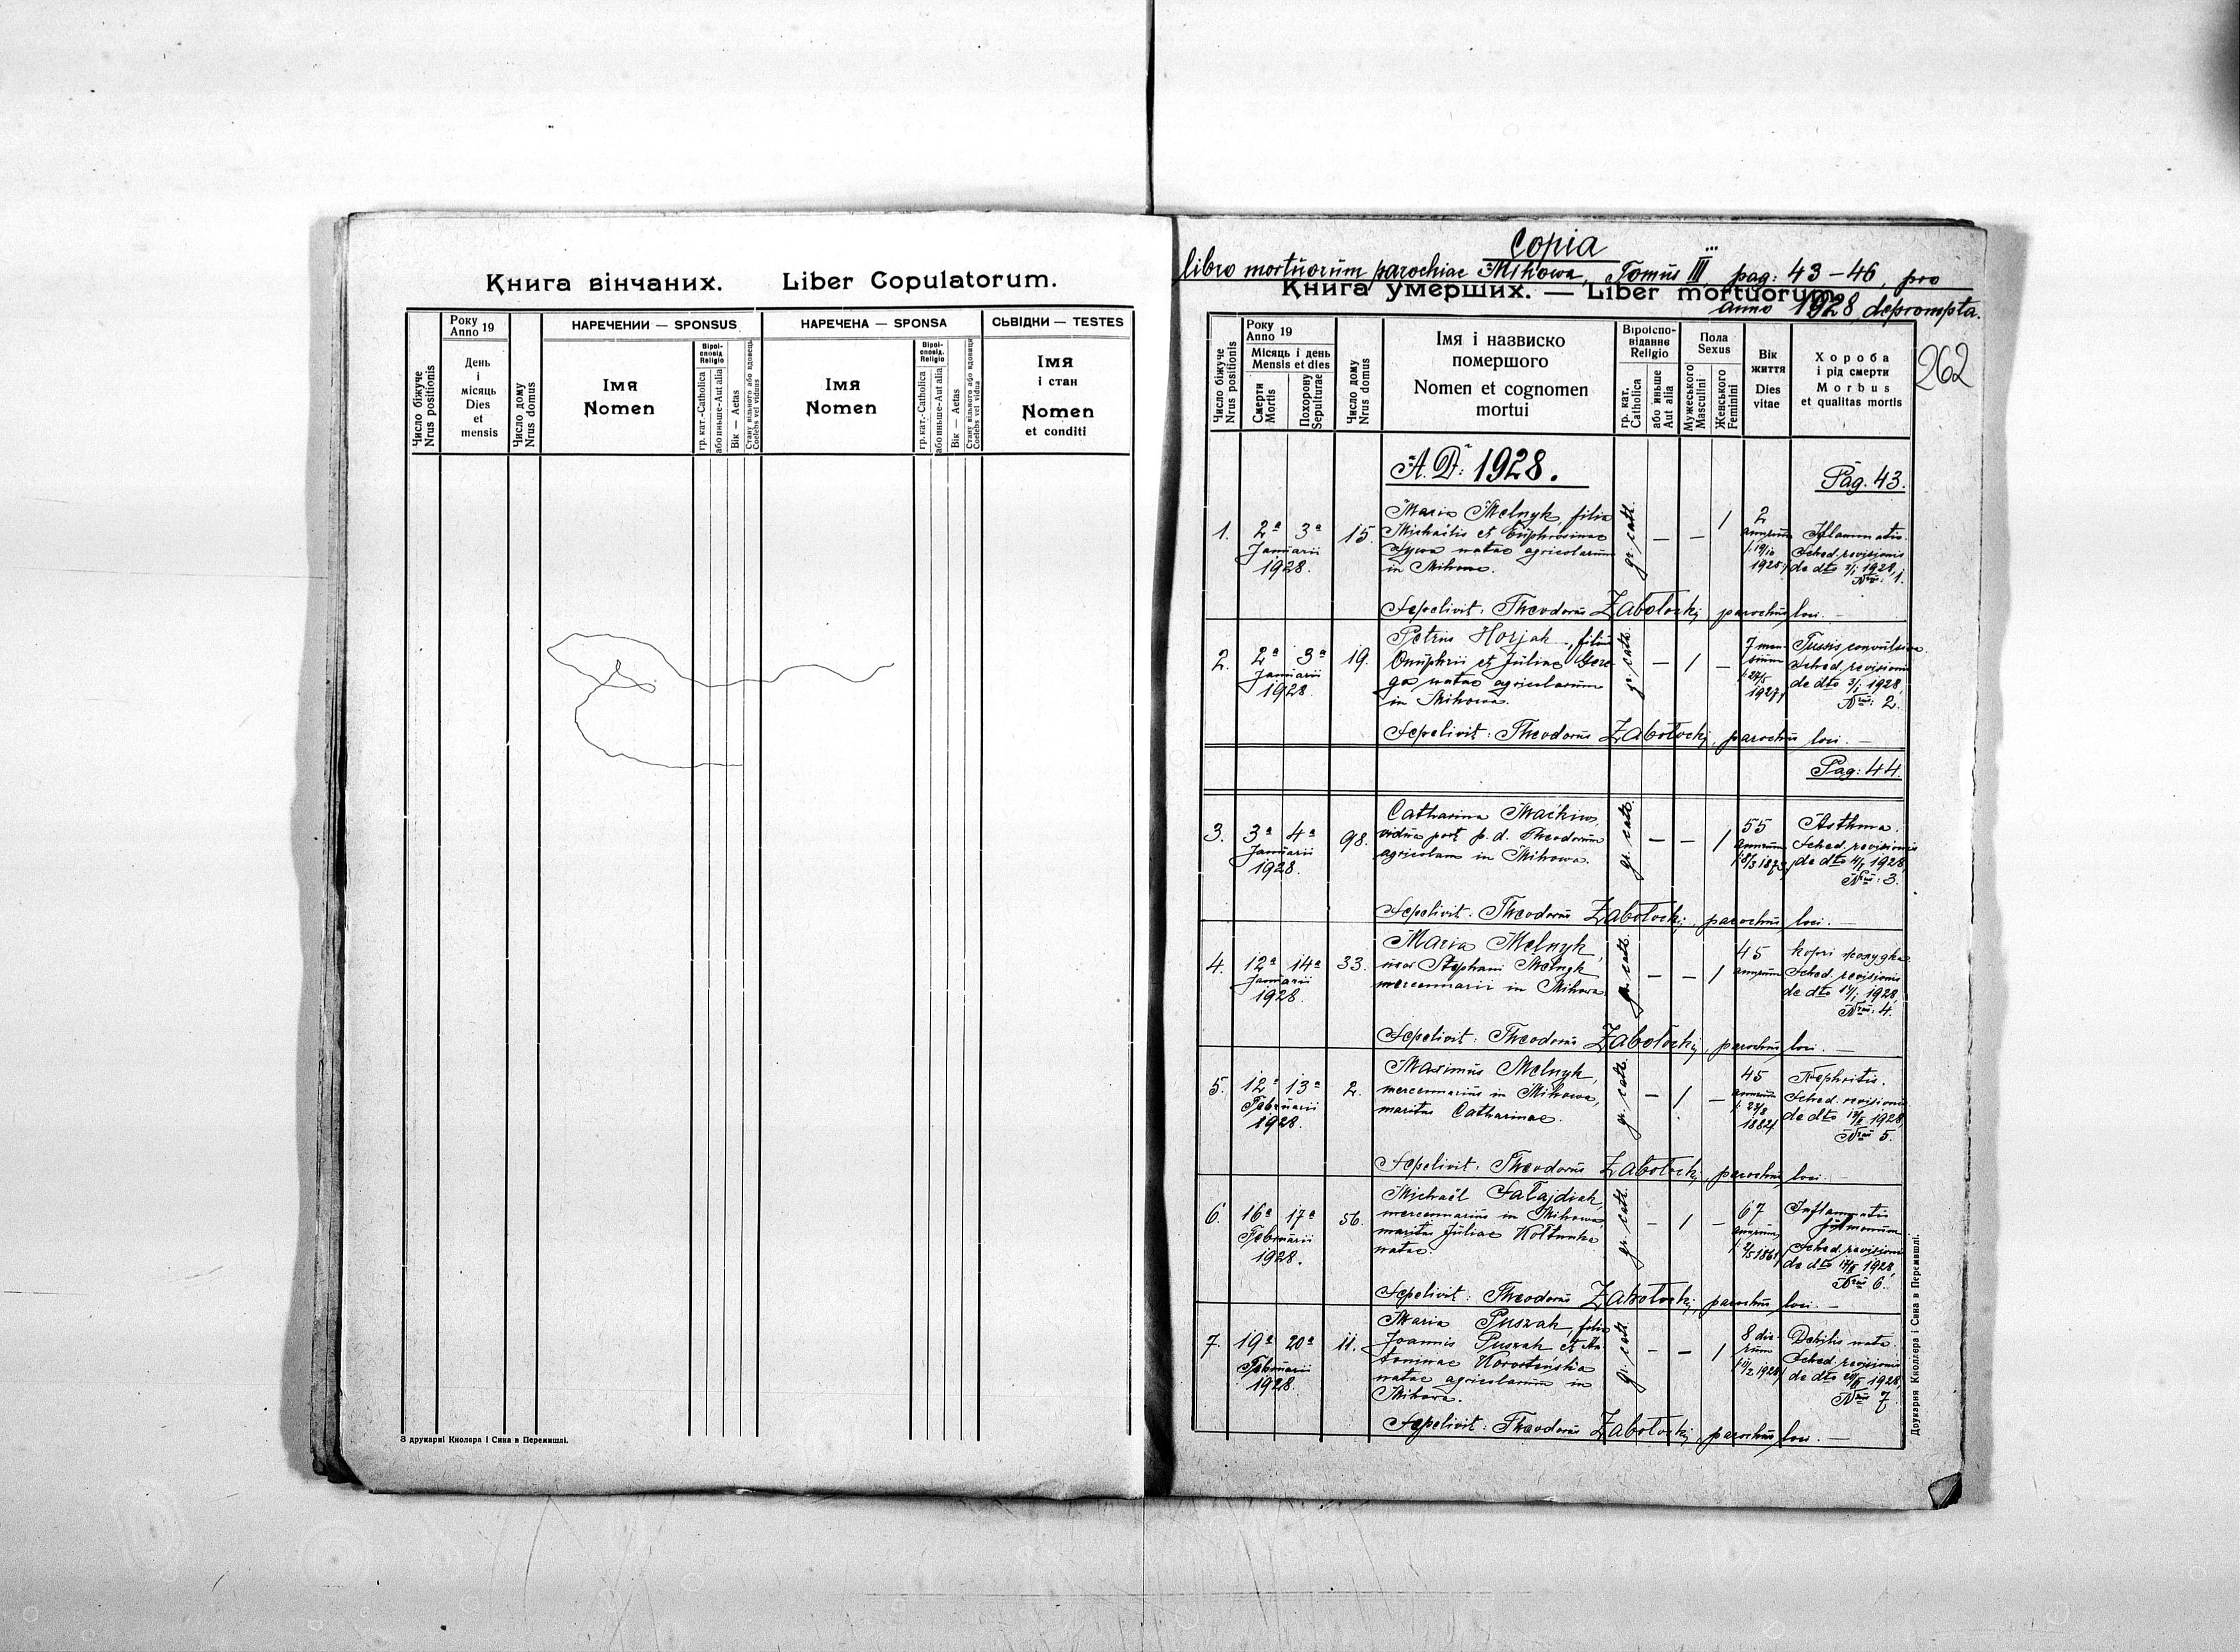 Книга вінчаних. Liber Copulatorum.
Число біжуче
Nrus positionis
Року
Anno 19
День
і
місяць
Dies
et
mensis
Число дому
Nrus domus
НАРЕЧЕНИЙ — SPONSUS
Імя
Nomen
Віроі-
сповід.
Religio
гр. кат.-Catholica
або иньше-Aut alia
Вік — Aetas
Стану вільного або вдовець
Coelebs vel viduus
НАРЕЧЕНА — SPONSA
Імя
Nomen
Віроі-
сповід.
Religio
гр. кат.-Catholica
або иньше-Aut alia
Вік — Aetas
Стану вільного або вдовиця
Coelebs vel vidua
СЬВІДКИ — TESTES
Імя
і стан
Nomen
et conditi
З друкарні Кнолєра і Сина в Перемишлі.
Copia
libro mortuorum parochiae Mihowa, Tomus III, pag: 43-46, pro
Книга умерших. — Liber mortuorum.
anno 1928 deprompta.
262
Число біжуче
Nrus positionis
Року
Anno 19
Місяць і день
Mensis et dies
Смерти
Mortis
Похорону
Sepulturae
Число дому
Nrus domus
Імя і назвиско
помершого
Nomen et cognomen
mortui
Віроіспо-
відане
Religio
гр. кат.
Catholica
або иньше
Aut alia
Пола
Sexus
Мужеського
Masculini
Женського
Feminini
Вік
життя
Dies
vitae
Хороба
і рід смерти
Morbus
et qualitas mortis
A. D. 1928.
Pag. 43.
1.
2ª 3ª
Januarii
1928.
15.
Maria Melnyk, filia
Michaëlis et Euphrosinae
natae agricolarum
in Mihowa.
gr. cath.
— — /
2
annorum
1925
Sched. revisionis
de dto 3/I 1928,
Nrus: 1.
Sepelivit: Theodorus Zabołockij, parochus loci. —
2.
2ª 3ª
Januarii
1928
19.
Petrus Horjak, filius
Onuphrii et Juliae
natae agricolarum
in Mihowa.
gr. cath.
— / —
7 men-
sium
1927
Tussis convulsiva.
Sched. revisionis
de dto 3/I 1928,
Nrus: 2.
Sepelivit: Theodorus Zabołockij, parochus loci. —
Pag: 44.
3.
3ª 4ª
Januarii
1928.
98.
Catharina
vidua post p. d. Theodorum
agricolam in Mihowa.
gr. cath.
— — /
55
annorum
Asthma.
Sched. revisionis
de dto 4/I 1928,
Nrus: 3.
Sepelivit: Theodorus Zabołockij, parochus loci. —
4.
12ª 14ª
Januarii
1928.
33.
Maria Melnyk,
uxor Stephani Melnyk
mercennarii in Mihowa.
gr. cath.
— — /
45
annorum
Sched. revisionis
de dto 14/I 1928,
Nrus: 4.
Sepelivit: Theodorus Zabołockij, parochus loci. —
5.
12ª 13ª
Februarii
1928.
2.
Maximus Melnyk,
mercennarius in Mihowa,
maritus Catharinae.
gr. cath.
— / —
45
annorum
1882
Nephritis.
Sched. revisionis
de dto 13/II 1928,
Nrus 5.
Sepelivit: Theodorus Zabołockij, parochus loci. —
6.
16ª 17ª
Februarii
1928.
56.
Michaël Fałajdiak,
mercennarius in Mihowa,
maritus Juliae
natae.
gr. cath.
— / —
67
annorum
1861
Inflammatio
pulmonum
Sched. revisionis
de dto 17/II 1928,
Nrus 6.
Sepelivit: Theodorus Zabołockij, parochus loci. —
7.
19ª 20ª
Februarii
1928.
11.
Maria Puszak, filia
Joannis Puszak et An-
toninae
natae agricolarum in
Mihowa.
gr. cath.
— — /
8 die-
rum
11/2 1928
Debilis nata.
Sched. revisionis
de dto 20/II 1928,
Nrus 7.
Sepelivit: Theodorus Zabołockij, parochus loci. —
Друкарня Кнолєра і Сина в Перемишлі.